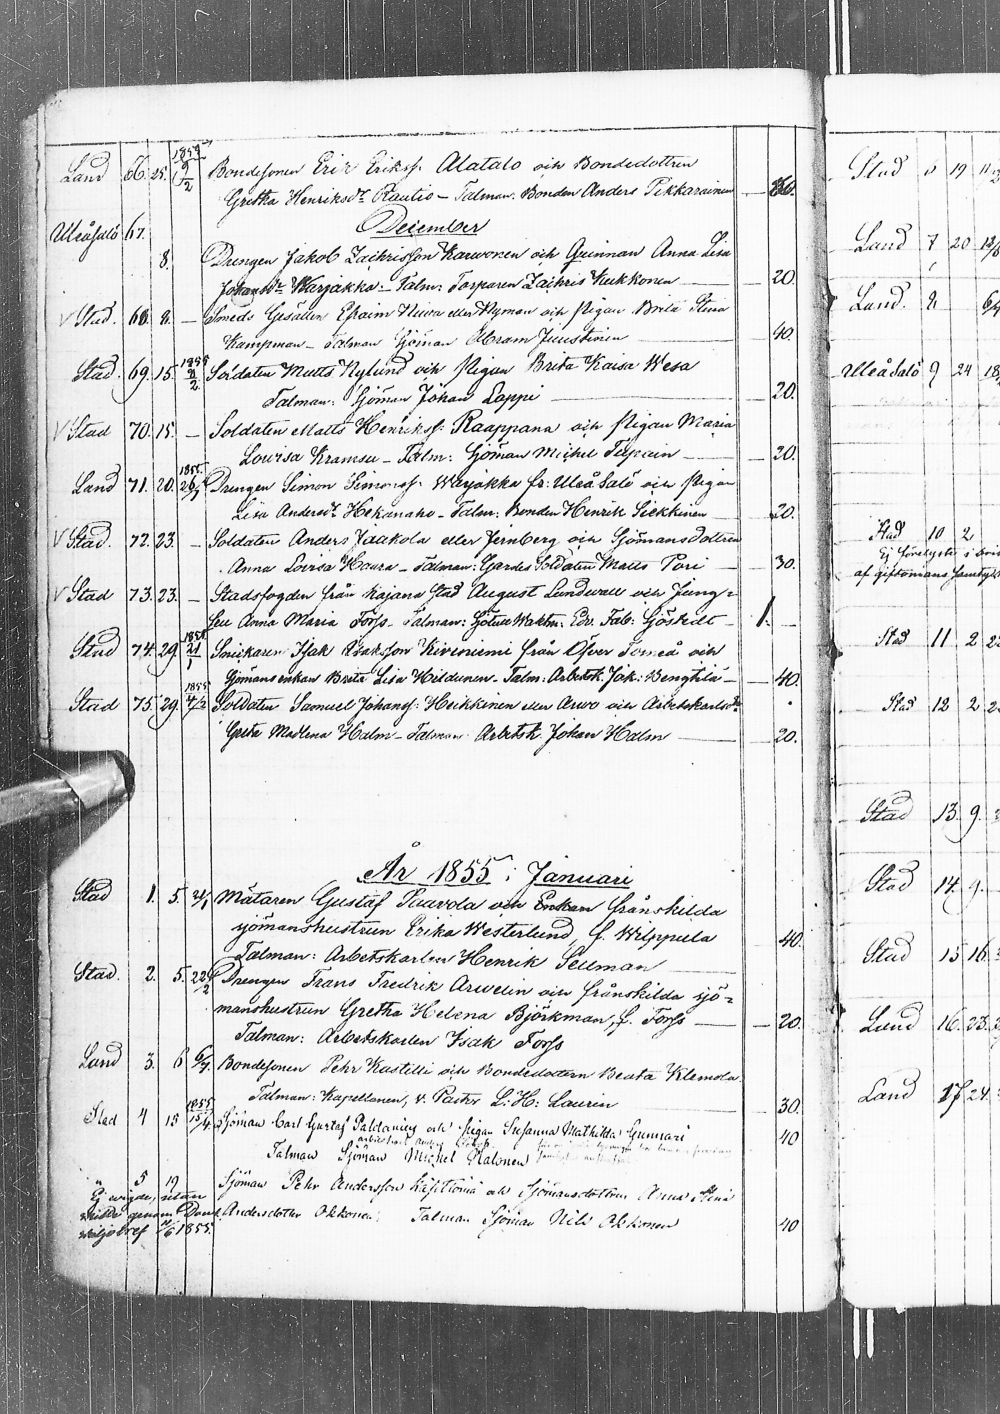 Land 66. 25. 1855 9/2 Bondesonen Eric Erikss. Alatalo och Bondedottren
Gretha Henriksdr Rautio – Talman: Bonden Anders Pikkarainen — 30.
Uleåsalo 67. December
8. Drengen Jakob Zachrisson Karwonen och Qvinnan Anna Lisa
Johansdr Karjakka – Talm: Torparen Zachris Kukkonen — 20.
v Stad. 68. 8. – Smeds Gesällen Efraim eller Nyman och Pigan Brita Stina
Kampman – Talman Sjöman Abram Juustinen — 40.
Stad. 69. 15. 1855 Soldaten Matts Nylund och Pigan Brita Kaisa Wesa
Talman: Sjöman Johan Lappi — 20.
v Stad 70. 15. – Soldaten Matts Henrikss. Raappana och Pigan Maria
Lovisa Kramsu – Talm: Sjöman Michel — 20.
Land 71. 20. 1855 26/ Drengen Simon Simonss. Warjakka fr. Uleå Salo och Pigan
Lisa Andersdr Hekanaho – Talm: Bonden Henrik Siekkinen — 20.
v Stad. 72. 23. – Soldaten Anders Jaakola eller Jernberg och Sjömansdottren
Anna Lovisa Haura – Talman: Gardes Soldaten Matts Pori — 30.
v Stad 73. 23. – Stadsfogden från Kajana Stad August Lundwall och Jung-
fru Anna Maria Forss – Talman: Edv. Fab: Sjöstedt – 1. –
Stad 74. 29. 21/1 Snickaren Isak Isaksson Kiviniemi från Öfver Torneå och
Sjömansenkan Brita Lisa Hildunen – Talm: Arbetsk. Jak: Bengtilä – 40.
Stad 75. 29. 1855 4/2 Soldaten Samuel Johanss: Heikkinen eller Arwo och Arbetskarlsdr
Greta Madlena Halm – Talman Arbetsk. Johan Halm — 20.
År 1855 i Januari
Stad 1. 5. 21/1 Mätaren Gustaf Paavola och Enkan frånskilda
sjömanshustrun Erika Westerlund, f. Wilppula — 40.
Talman: Arbetskarlen Henrik Sellman
Stad. 2. 5. 22/2 Drengen Frans Fredrik Arwelin och frånskilda sjö=
manshustrun Gretha Helena Björkman, f. Forss — 20.
Talman: Arbetskarlen Isak Forss
Land 3. 6 Bondesonen Pehr Kastelli och Bondedottern Beata Klemola.
Talman: Kapellanen, v. Pastor L: H: Laurin — 30.
Stad 4 15 1855 15/4 Sjöman Carl Gustaf Paldanius och Pigan Susanna Mathilda Gunnari 40
Talman Sjöman Michel Halonen
" 5 19 Sjöman Pehr Andersson och Sjömansdottren Anna Stina
Ej wigde, utan
skilde genom Domk. Andersdotter Okkonen. Talman Sjöman Nils Okkonen 40
skiljobref /6 1855.
Stad 19
Land 7 20
Land. 8
Uleåsalo 9 24
Stad 10 2
Ej
af giftomans
Stad 11 2
Stad 12 2
Stad 13. 9.
Stad 14. 9.
Stad 15 16.
Land 16. 23.
Land 17 24.